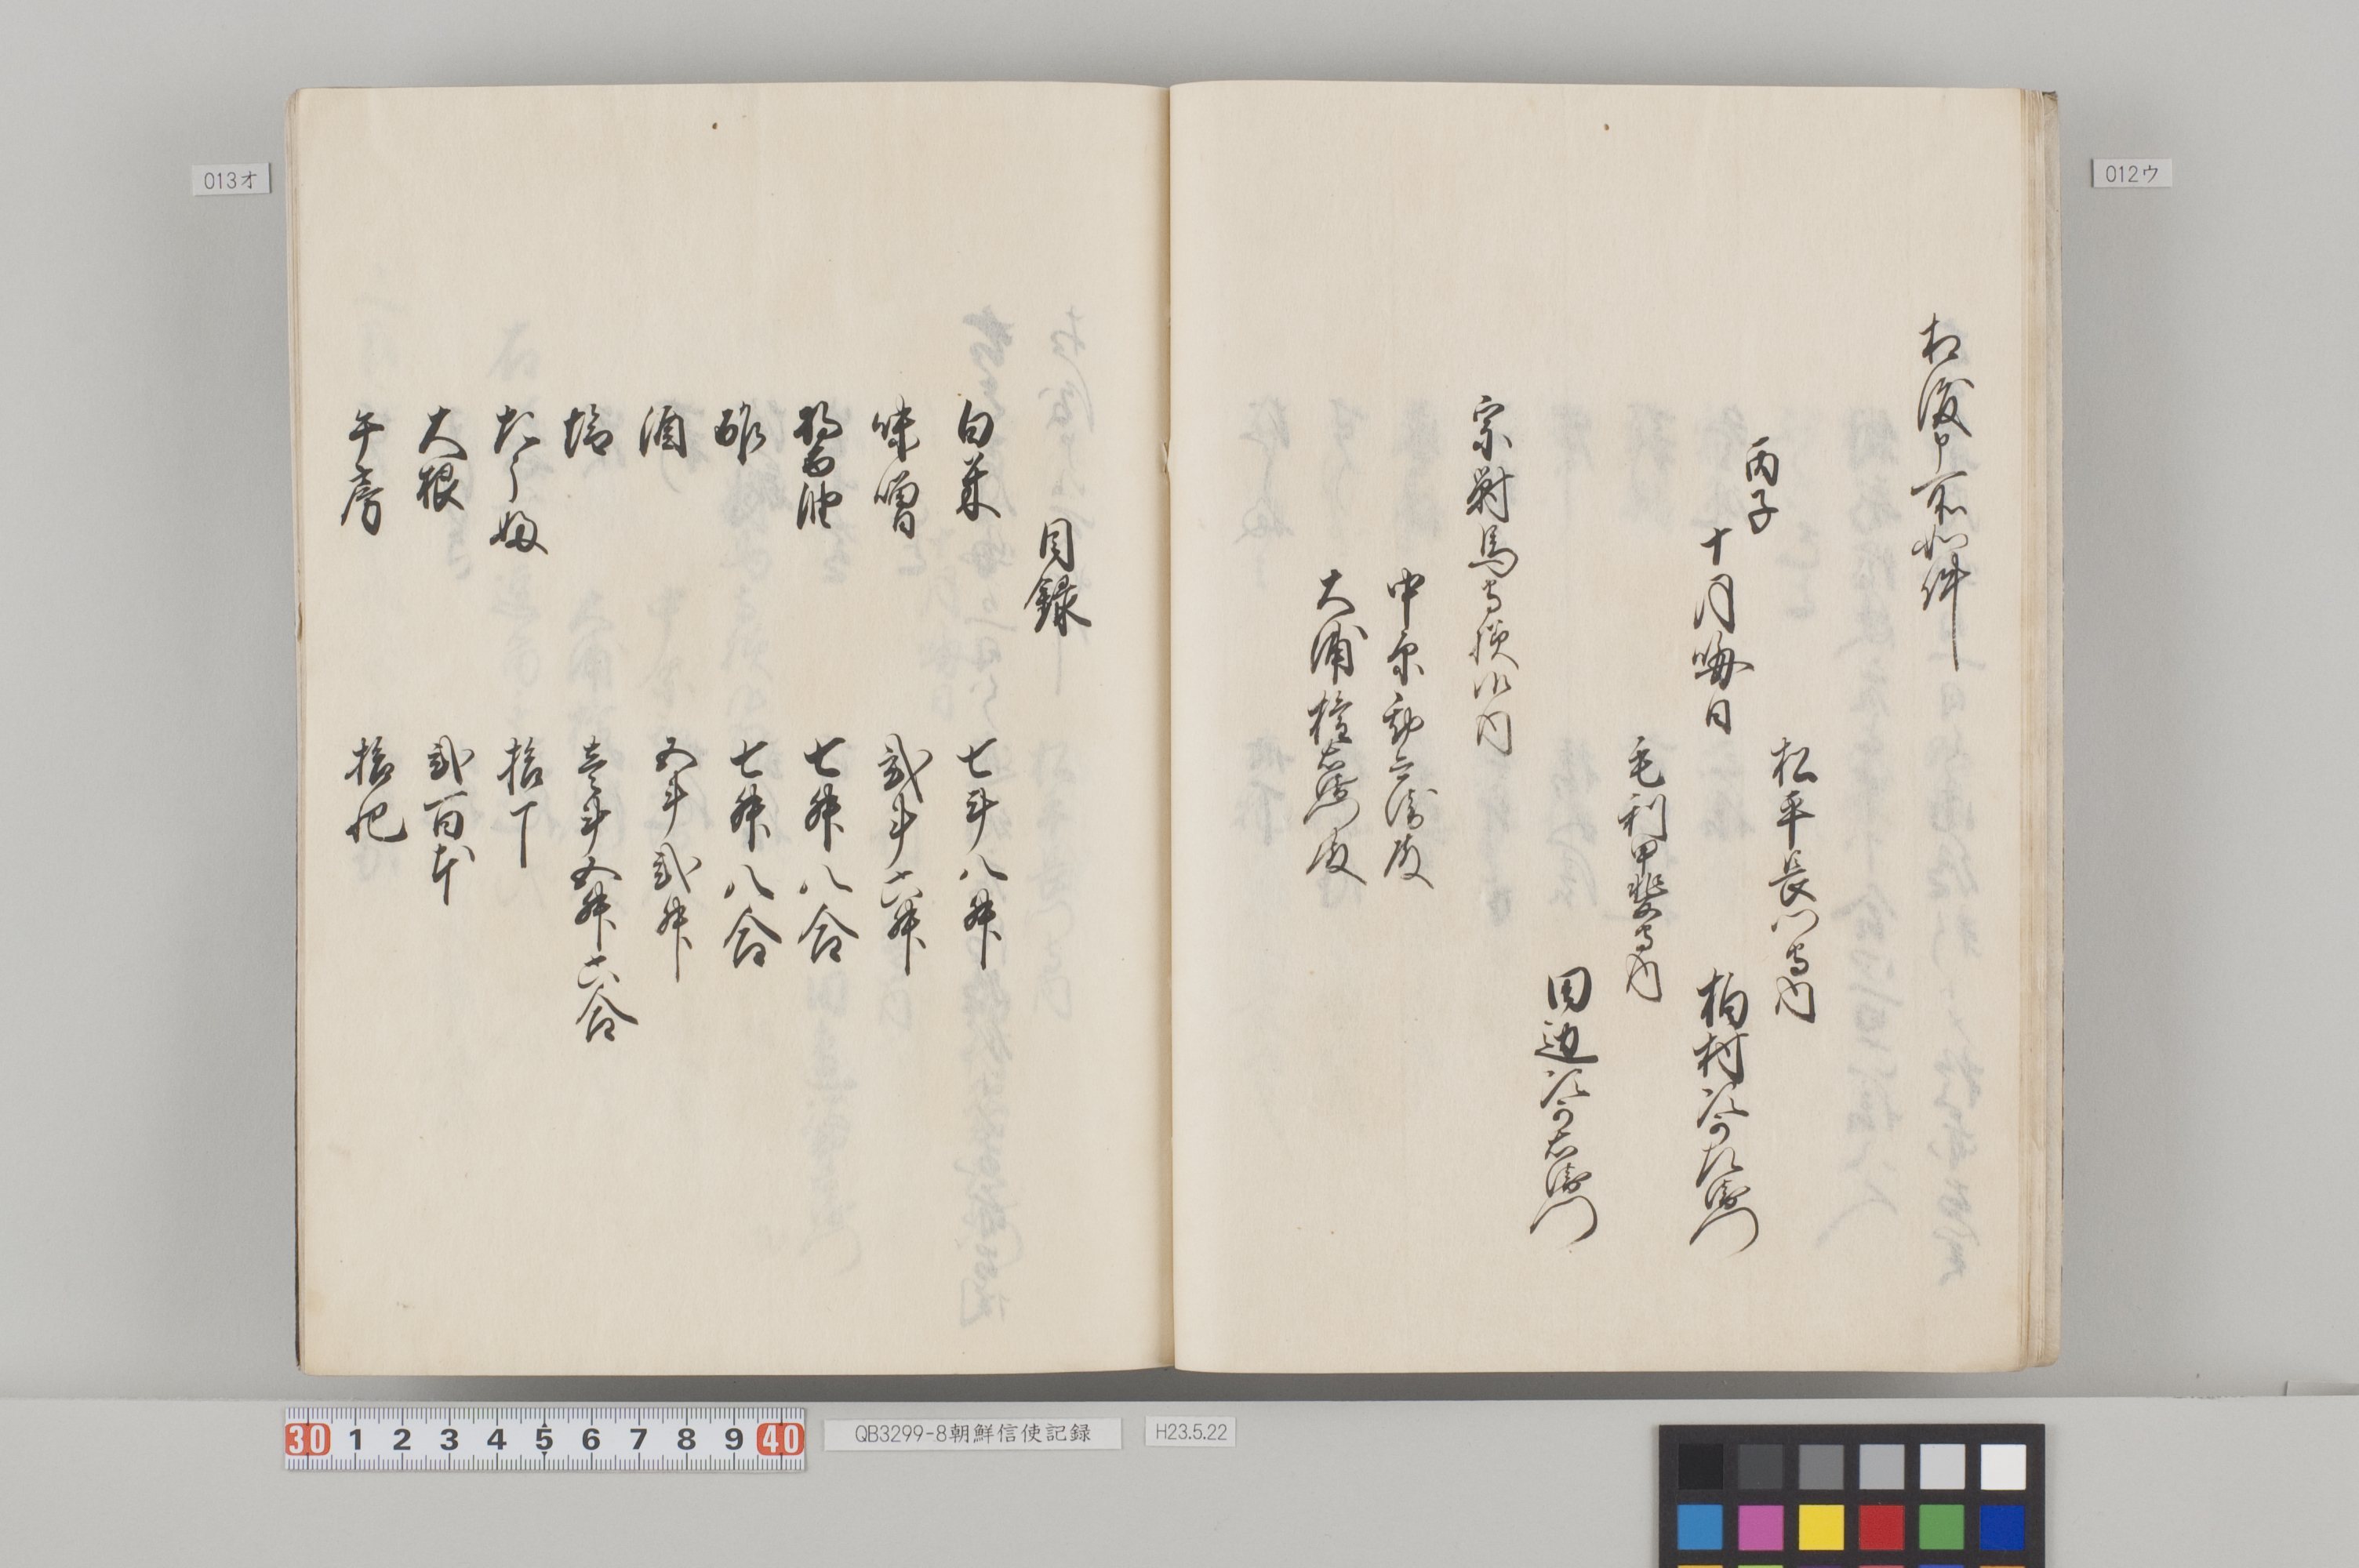 012ウ
相渡申所如件
丙子
十月晦日
松平長門守内
柏村冶右衛門
毛利甲斐守内
田辺冶右衛門
宗対馬守様御内
中原勘兵衛殿
大浦権右衛門殿
013オ
目録
白菜 七斗八舛
味噌 弐斗六舛
醤油 七舛八合
酢 七舛八合
酒 五斗弐舛
塩 壱斗五舛六合
たうふ 拾丁
大根 弐百本
午房 拾把
30 1 2 3 4 5 6 7 8 9 40
QB3299-8朝鮮信使記録
H23.5.22